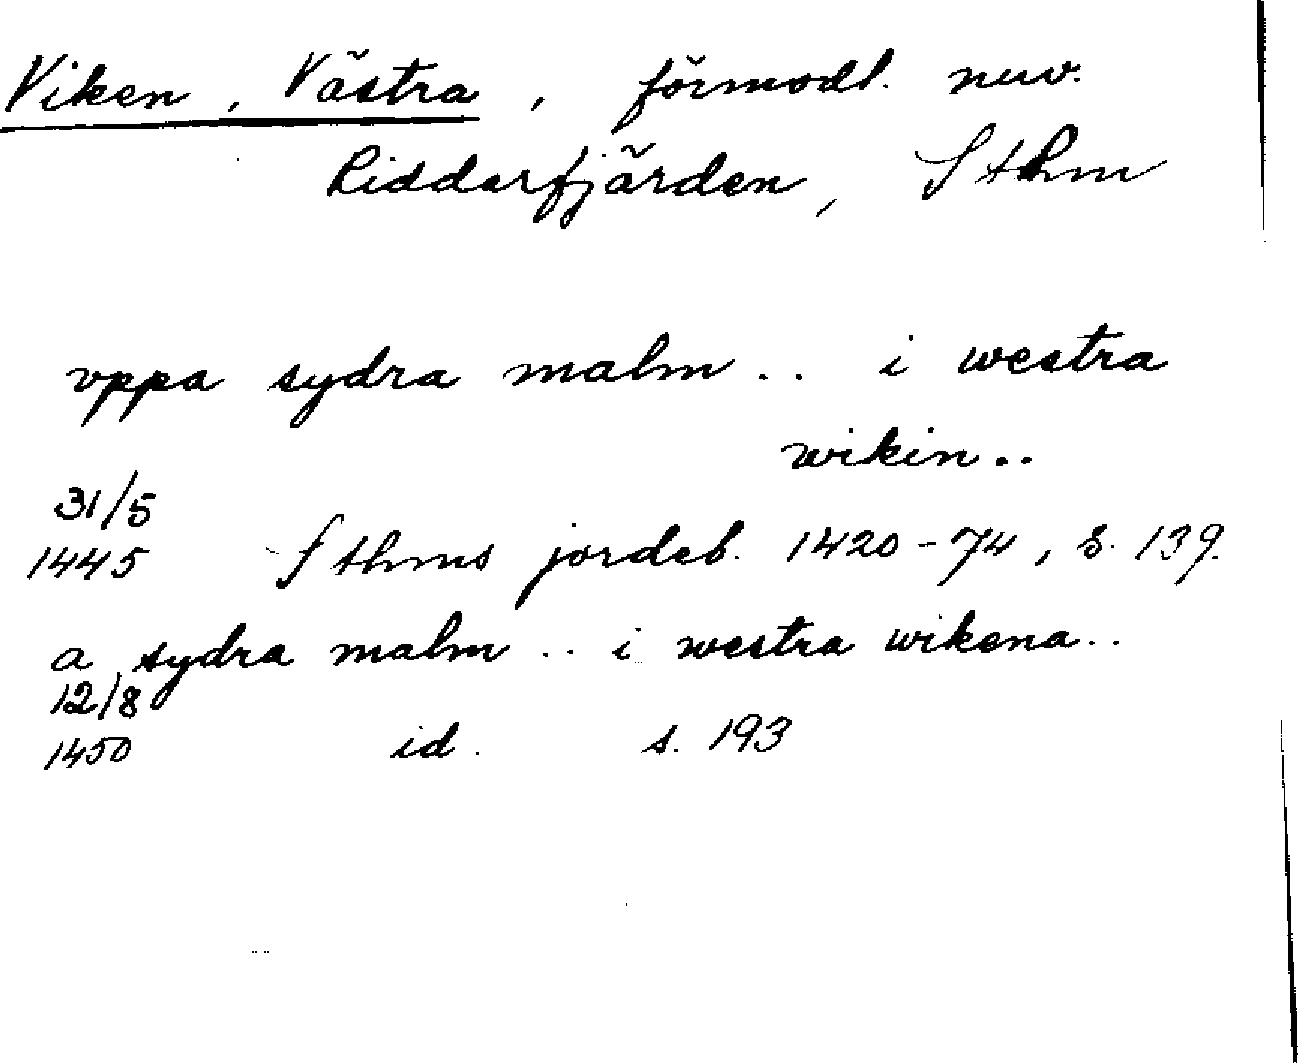 Viken, Västra, förmodl. nuv.
Riddarfjärden, Sthm
vppa sydra malm .. i westra
wikin ..
31/5
1445 Sthms jordeb. 1420-74, s. 139.
a sydra malm .. i westra wikena ..
12/8
1450 id. s. 193